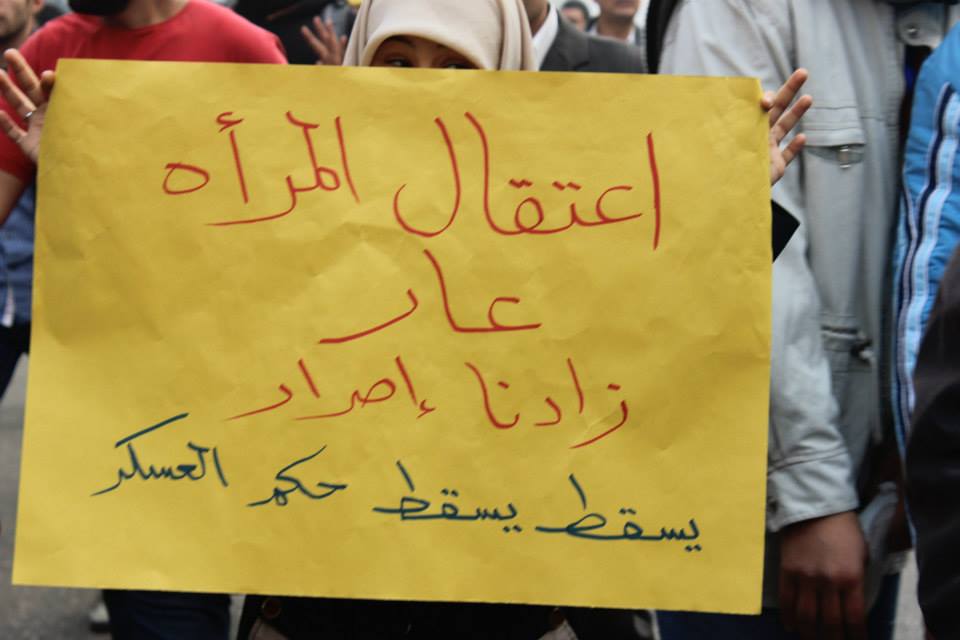 اعتقال المرأه
عار
زادنا إصرار
يسقط يسقط حكم العسكر